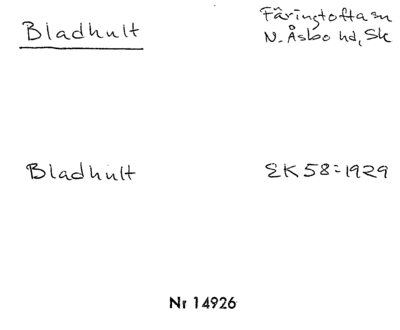 Bladhult
Färingtofta sn
N. Åsbo hd, Sk
Bladhult
EK 58 = 1929
Nr 14926